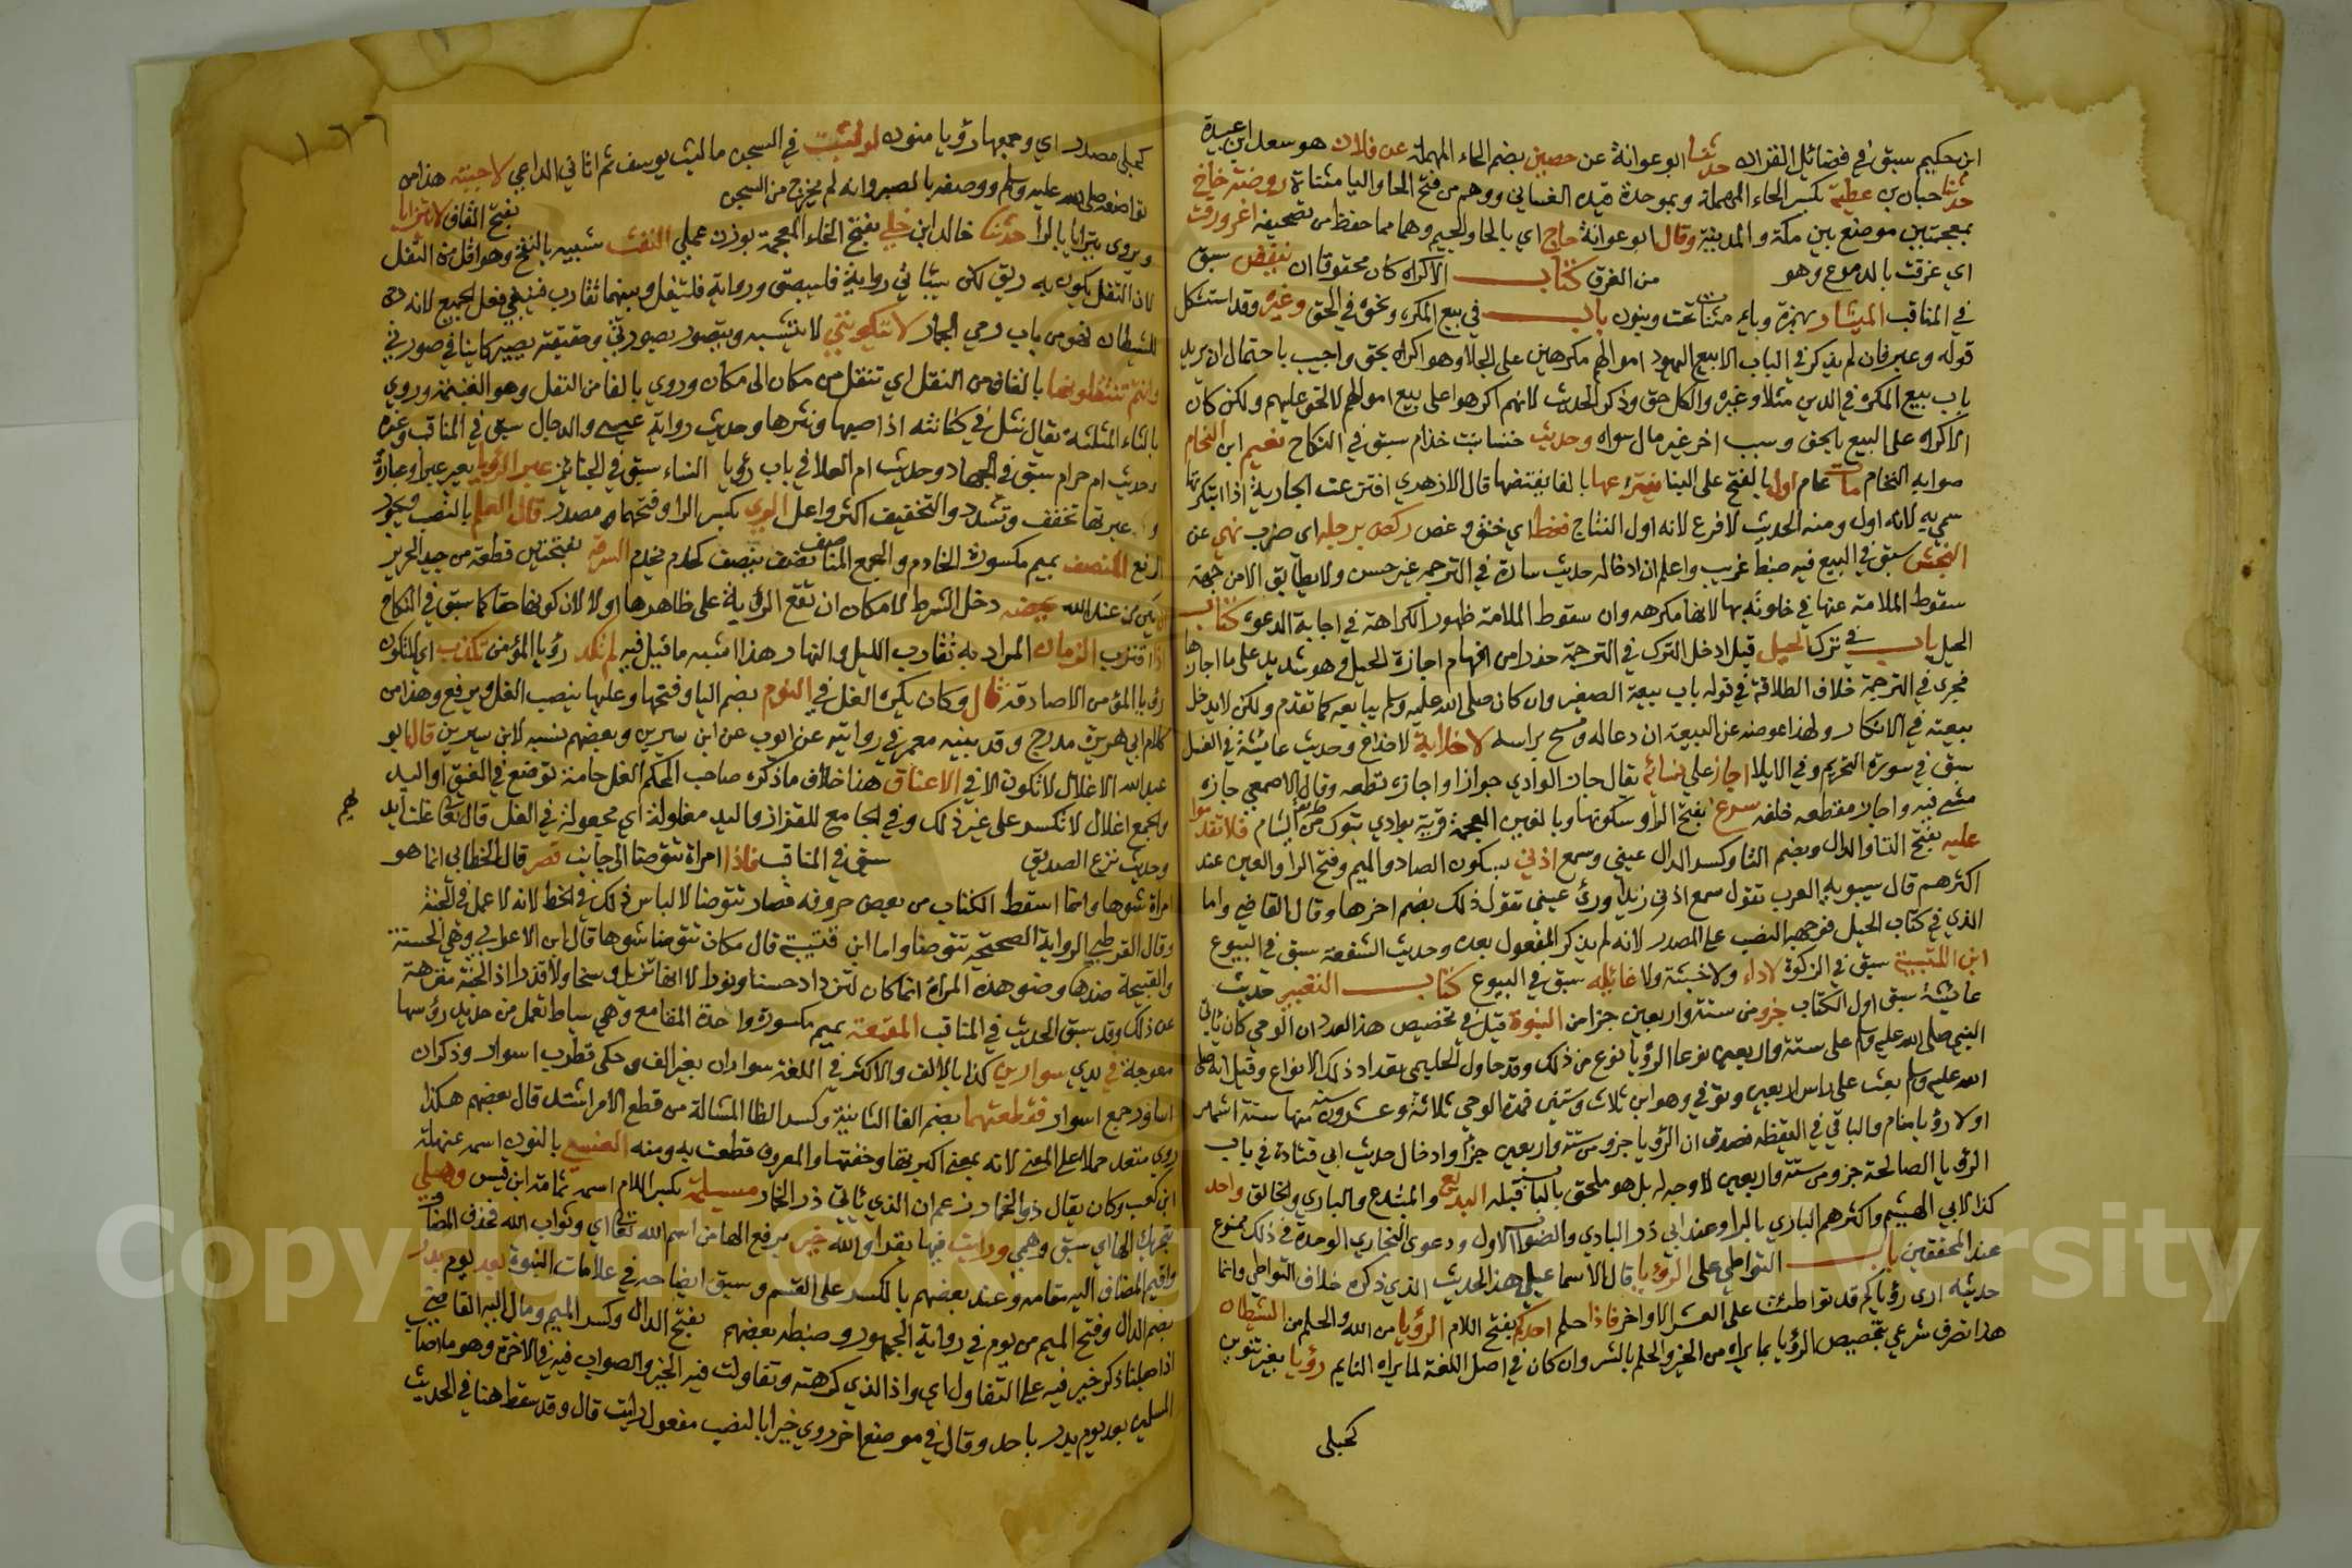 ابن حكيم سبق في فضائل القران حدثنا ابو عوانة عن حصين بضم الحاء المهملة عن فلان هو سعد بن عبيدة
حدثنا حبان بن عطية بكسر الحاء المهملة وبموحدة قيده الغساني ووهم من فتح الحا واليا مثناة روضة خاخ
بمعجمتين موضع بين مكة والمدينة وقال ابو عوانة حاج اي بالحا والجيم وهما مما حفظ من تصحيفه اغرورقت
اي غرقت بالدموع وهو من الغرق كتاب الاكراه كان محقوقا ان ينقض سبق
في المناقب الميشار بهمزة وباي مثناة تحت وبنون باب في بيع المكره ونحوه في الحق وغيره وقد استشكل
قوله وغيره فان لم يذكر في الباب الا بيع اليهود اموالهم مكرهين على الجلا وهو اكراه بحق واجيب باحتمال ان يريد
باب بيع المكره في الدين مثلا وغيره والكل حق وذكر الحديث لانهم اكرهوا على بيع اموالهم لا لحق عليهم ولكن كان
الاكراه على البيع بالحق وسبب اخر غير مال سواه وحديث خنسا بنت خذام سبق في النكاح نعيم ابن النحام
صوابه النحام مات عام اول بالفتح على البنا يفترعها بالفا يفتضها قال الازهري افترعت الجارية اذا ابتكرتها
سمي به لانه اول ومنه الحديث لا فرع لانه اول النتاج فغط اي خنق وغص ركض برجله اي ضرب نهي عن
النجش سبق في البيع فيه ضبط غريب واعلم ان ادخاله حديث سارة في الترجمه غير حسن ولا يطابق الا من جهة
سقوط الملامة عنها في خلوته بها لانها مكرهه وان سقوط الملامة ظهور الكراهة في اجابة الدعوه كتاب
الحيل باب في ترك الحيل قيل ادخل الترك في الترجمة حذرا من افهام اجازة الحيل وهو شديد على ما اجازها
فجرى في الترجمة خلاف اطلاقه في قوله باب بيعة الصغير وان كان صلى الله عليه وسلم يبايعه كما تقدم ولكن لا يدخل
بيعته في الانكار ولهذا عوضه عن البيعة ان دعا له ومسح براسه لا خلابة لا خداع وحديث عائشة في الغسل
سبق في سورة التحريم وفي الايلا اجاز على نسائه يقال جاز الوادي جوازا واجازه قطعه وقال الاصمعي جازه
مشى فيه واجاز مقطعه خلفه سرغ بفتح الرا وسكونها وبالغين المعجمة قرية بوادي تبوك من طريق الشام فلا تقدموا
عليه بفتح التا والدال وبضم التا وكسر الدال عيني وسمع اذني بسكون الصاد والميم وفتح الرا والعين عند
اكثرهم قال سيبويه العرب تقول سمع اذني زيدا وراى عيني تقول ذلك بضم اخرها وقال القاضي واما
الذي في كتاب الحيل فوجهه النصب على المصدر لانه لم يذكر المفعول بعده وحديث الشفعة سبق في البيوع
ابن اللتبية سبق في الزكوة لا داء ولا خبثة ولا غائله سبق في البيوع كتاب التعبير حديث
عائشة سبق اول الكتاب جزو من ستة واربعين جزا من النبوة قيل في تخصيص هذا العدد ان الوحي كان ياتي
النبي صلى الله عليه وسلم على ستة واربعين نوعا الرؤيا نوع من ذلك وقد حاول الحليمي تعداد ذلك الانواع وقيل انه صلى
الله عليه وسلم بعث على راس اربعين وتوفي وهو ابن ثلاث وستين فمدة الوحي ثلاثة وعشرون سنة منها ستة اشهر
اولا رؤيا منام والباقي في اليقظه فصدق ان الرؤيا جزو من ستة واربعين جزا وادخال حديث ابي قتادة في باب
الرؤيا الصالحة جزو من ستة واربعين لا وجه له بل هو ملحق بالباب قبله البديع والمبتدع والبادي والخالق واحد
كذا لابي الهيثم واكثرهم الباري بالرا وعند ابي ذر البادي والصواب الاول ودعوى البخاري الوحدة في ذلك ممنوع
عند المحققين باب التواطي على الرؤيا قال الاسماعيلي هذا الحديث الذي ذكره خلاف التواطي وانما
حديثه ارى رؤياكم قد تواطئت على العشر الاواخر فاذا حلم احدكم بفتح اللام الرؤيا من الله والحلم من الشيطان
هذا تصرف شرعي بتخصيص الرؤيا بما يراه من الخير والحلم بالشر وان كان في اصل اللغة لما يراه النايم رؤيا بغير تنوين
كحبلى
١٦٦
كحبلى مصدر اي وجمعها رؤيا منون لو لبثت في السجن ما لبث يوسف ثم اتاني الداعي لاجبته هذا من
تواضعه صلى الله عليه وسلم ووصفه بالصبر وانه لم يخرج من السجن بفتح القاف لا يتزايا
ويروى يترايا بالرا حدثنا خالد ابن خلي بفتح الخاء المعجمة بوزن عملي النفث شبيه بالنفخ وهو اقل من التفل
لان التفل يكون به ريق لكن سياتي في رواية فليبصق ورواية فليتفل وبينهما تقارب فينبغي فعل الجميع لانه رجم
للشيطان فهو من باب رمي الجمار لا يتكونني لا يتشبه ويتصور بصورتي وحقيقته يصير كاينا في صورتي
وانتم تنتقلونها بالقاف من النقل اي تنقل من مكان الى مكان وروي بالفا من النفل وهو الغنيمة وروي
بالثاء المثلثة يقال نثل في كنانته اذا صبها ونثرها وحديث رواية عيسى والدجال سبق في المناقب وغيره
وحديث ام حرام سبق في الجهاد وحديث ام العلا في باب رؤيا النساء سبق في الجنائز عبر الرؤيا يعبر عبرا وعبارة
وعبرتها تخفف وتشدد والتخفيف اكثر واعلى الري بكسر الرا وفتحها مصدر قال العلم بالنصب ويجوز
الرفع المنصف بميم مكسورة الخادم والجمع المناصف نصف ينصف كخدم يخدم السرقة بفتحتين قطعة من جيد الحرير
ان يكن من عند الله يمضه دخل الشرط لامكان ان تقع الرؤية على ظاهرها او لا لان كونها حقا كما سبق في النكاح
اذا اقترب الزمان المراد به تقارب الليل والنهار هذا اشبه ما قيل فيه لم تكد رؤيا المؤمن تكذب اي لا تكون
رؤيا المؤمن الا صادقة قال وكان يكره الغل في النوم بضم اليا وفتحها وعليها ينصب الغل ويرفع وهذا من
كلام ابي هريرة مدرج وقد بينه معمر في روايته عن ايوب عن ابن سيرين وبعضهم نسبه لابن سيرين قال ابو
عبد الله الاغلال لا تكون الا في الاعناق هنا خلاف ما ذكره صاحب المحكم الغل جامعة توضع في العنق او اليد
والجمع اغلال لا تكسر على غير ذلك وفي الجامع للقزاز واليد مغلولة اي مجعولة في الغل قال تعالى غلت ايديهم
وحديث نزع الصديق سبق في المناقب فاذا امراة تتوضا الى جانب قصر قال الخطابي انما هو
امراة شوها وانما اسقط الكتاب من بعض حروفه فصار تتوضا لالباس ذلك في الخط لانه لا عمل في الجنة
وقال القرطبي الرواية الصحيحة تتوضا واما ابن قتيبة قال مكان تتوضا شوها قال ابن الاعرابي وهي الحسنة
والقبيحة ضدها وضو هذه المراة انما كان لتزداد حسنا ونورا لا انها تزيل وسخا ولا قذرا اذ الجنة منزهة
عن ذلك وقد سبق الحديث في المناقب المقمعة بميم مكسورة واحدة المقامع وهي سياط تعمل من حديد رؤسها
معوجة في يدي سوارين كذا بالالف والاكثر في اللغة سواران بغير الف وحكى قطرب اسوار وذكر ان
اساور جمع اسوار ففظعتهما بضم الفا الثانية وكسر الظا المشالة من فظع الامر اشتد قال بعضهم هكذا
روي متعد حملا على المعنى لانه بمعنى اكبرتها وخفتها والمعروف فظعت به ومنه العنسي بالنون اسمه عيهلة
ابن كعب وكان يقال ذو الخمار زعم ان الذي ياتي ذو الخمار مسيلمة بكسر اللام اسمه ثمامة ابن قيس وهلي
بتحريك الها اي سبق وهمي ورايت فيها بقرا والله خير برفع الها من اسم الله تعالى اي وثواب الله فحذف المضاف
واقيم المضاف اليه مقامه وعند بعضهم بالكسر على القسم وسبق ايضاحه في علامات النبوة بعد يوم بدر
بضم الدال وفتح الميم من يوم في رواية الجمهور وضبطه بعضهم بفتح الدال وكسر الميم ومال اليه القاضي
اذا صلنا ذكر خير فيه على التفاول اي واذا الذي كرهته وتفاولت فيه الخير والصواب فيه في الاخرة وهو ما اصاب
المسلمين بعد يوم بدر باحد وقال في موضع اخر روي خيرا بالنصب مفعول رايت قال وقد سقط هنا في الحديث
Copyright © King Saud University